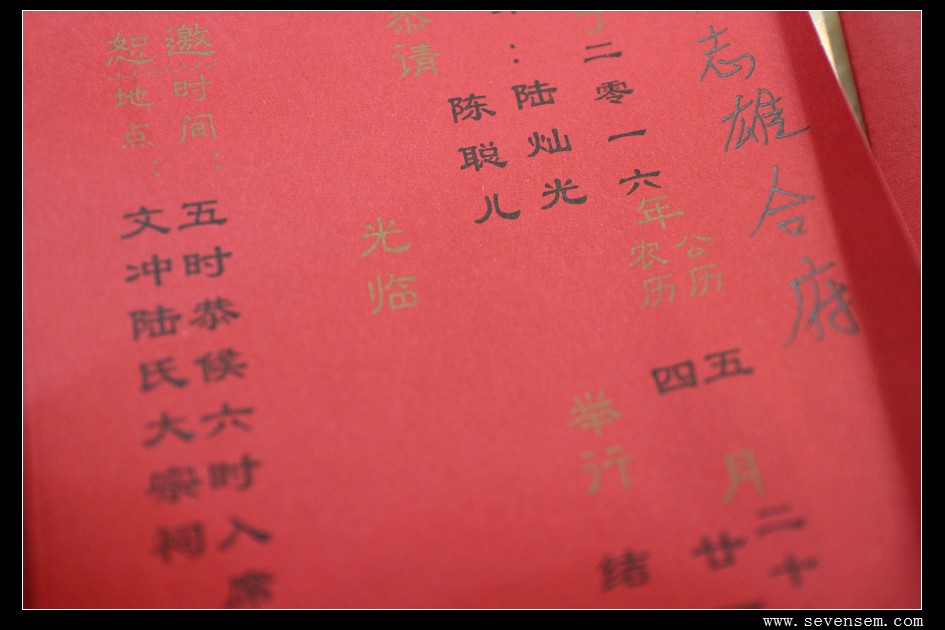 志雄合府
于二零一六年
公历 五月二十
农历 四 廿一
举行 结
陆灿光
陈聪儿
恭请
光临
邀时间：五时恭候六时入席
恕地点：文冲陆氏大宗祠
www.sevensem.com